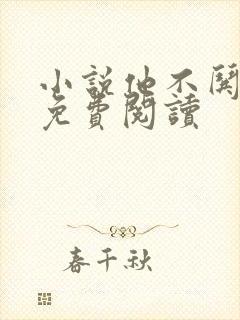 小說他不
免費閱讀
春千秋